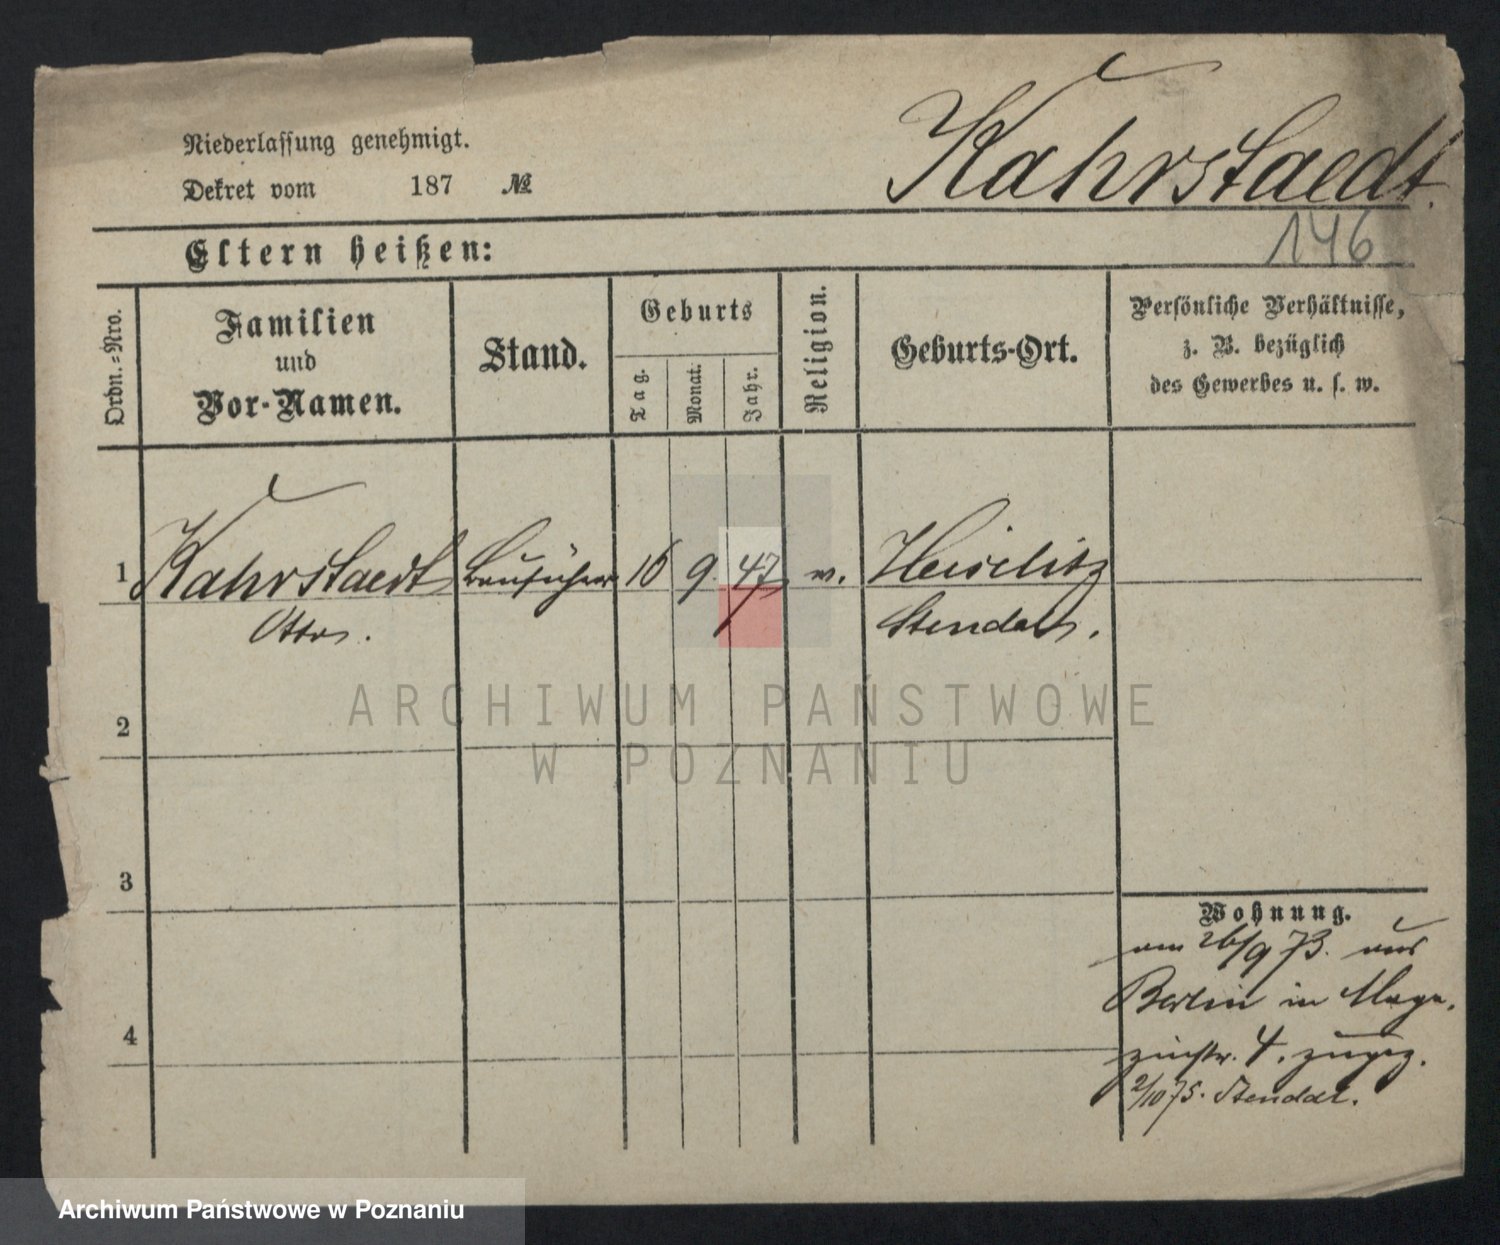 Niederlassung genehmigt.
Dekret vom 187 №
Kahrstaedt.
146
Eltern heißen:
Ordn.-Nro.
Familien
und
Vor-Namen.
Stand.
Geburts
Tag.
Monat.
Jahr.
Religion.
Geburts-Ort.
Persönliche Verhältnisse,
z. B. bezüglich
des Gewerbes u. s. w.
1 Kahrstaedt Bauführer 16 9. 47 ev.
Otto.
Stendal.
2
3
4
Wohnung.
am 26/9 73. aus
Berlin in Maga-
zinstr. 4. zugez.
2/10 75. Stendal.
ARCHIWUM PAŃSTWOWE
W POZNANIU
Archiwum Państwowe w Poznaniu